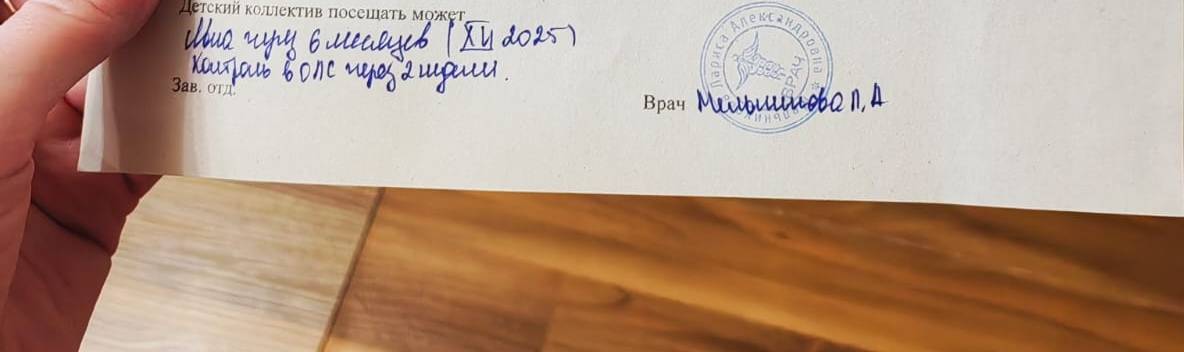 Детский коллектив посещать может
Явка через 6 месяцев (XII 2025)
Контроль в ОПС через 2 недели.
Зав. отд.
Врач Мельникова Л.А
Лариса Александровна * ВРАЧ